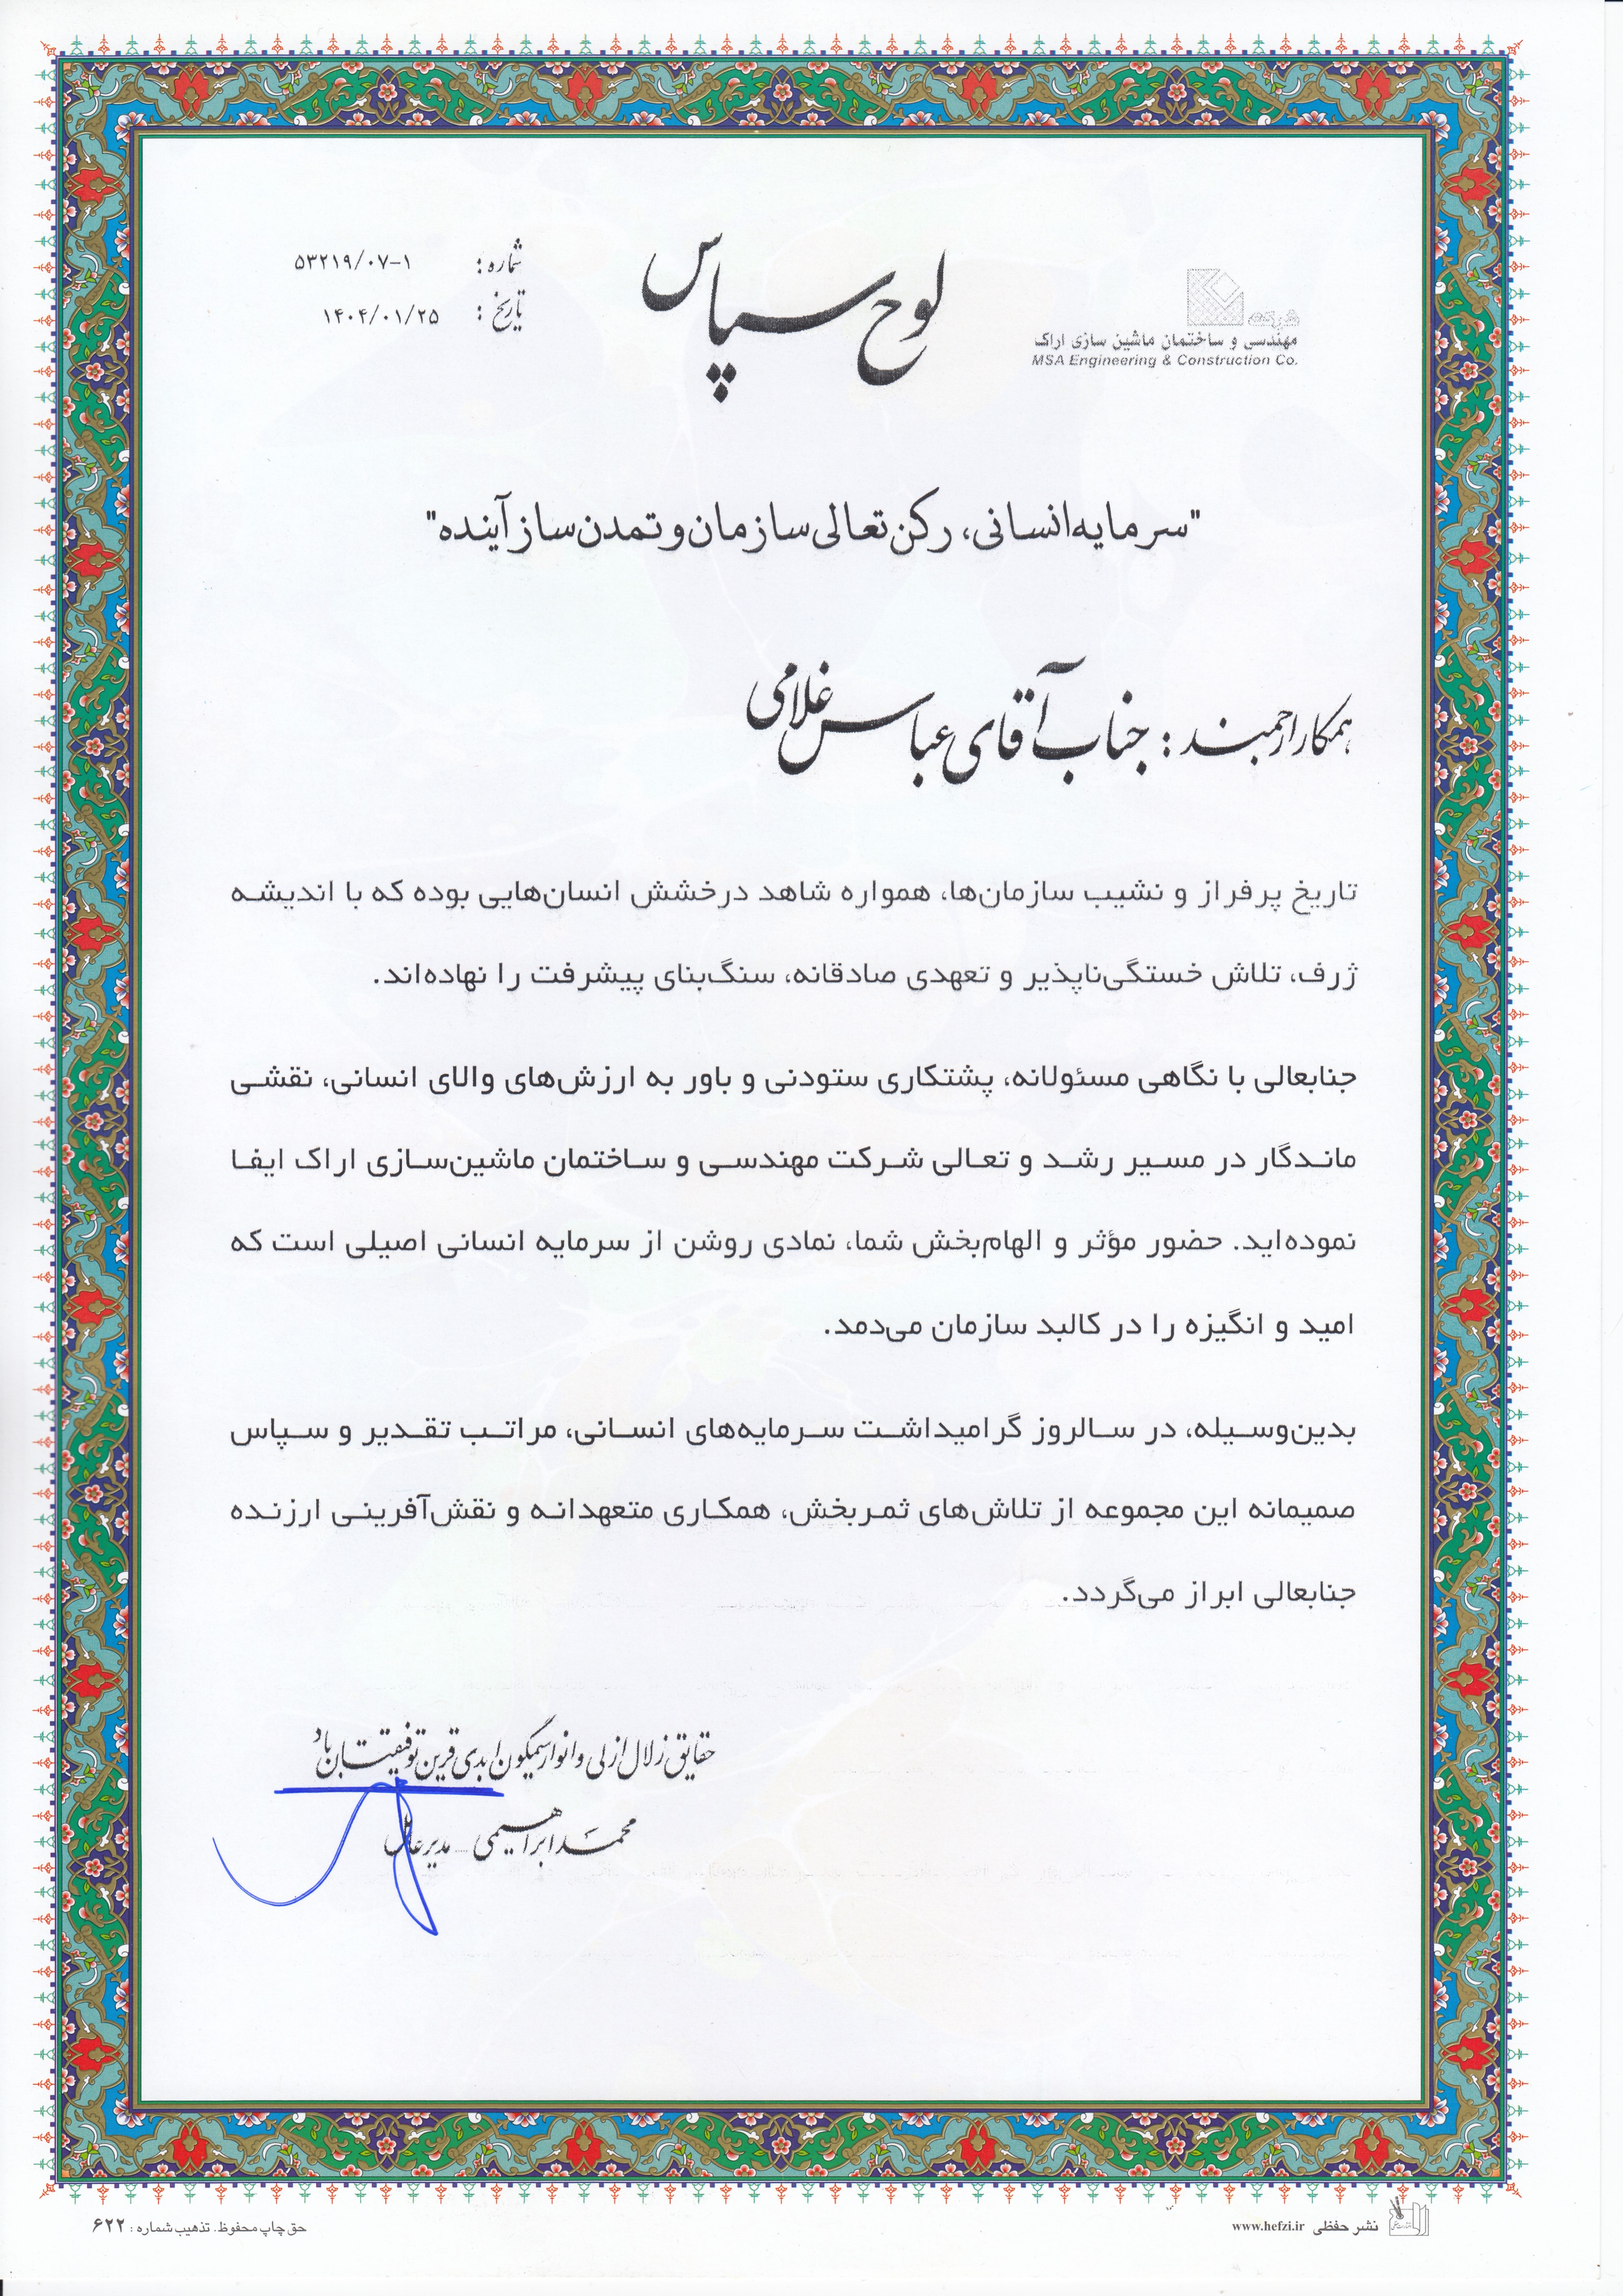 لوح سپاس
شماره: ۵۳۲۱۹/۰۷-۱
تاریخ: ۱۴۰۴/۰۱/۲۵
شرکت
مهندسی و ساختمان ماشین سازی اراک
MSA Engineering & Construction Co.
"سرمایه انسانی، رکن تعالی سازمان و تمدن ساز آینده"
همکار ارجمند: جناب آقای عباس غلامی
تاریخ پرفراز و نشیب سازمان‌ها، همواره شاهد درخشش انسان‌هایی بوده که با اندیشه
ژرف، تلاش خستگی‌ناپذیر و تعهدی صادقانه، سنگ‌بنای پیشرفت را نهاده‌اند.
جنابعالی با نگاهی مسئولانه، پشتکاری ستودنی و باور به ارزش‌های والای انسانی، نقشی
ماندگار در مسیر رشد و تعالی شرکت مهندسی و ساختمان ماشین‌سازی اراک ایفا
نموده‌اید. حضور مؤثر و الهام‌بخش شما، نمادی روشن از سرمایه انسانی اصیلی است که
امید و انگیزه را در کالبد سازمان می‌دمد.
بدین‌وسیله، در سالروز گرامیداشت سرمایه‌های انسانی، مراتب تقدیر و سپاس
صمیمانه این مجموعه از تلاش‌های ثمربخش، همکاری متعهدانه و نقش‌آفرینی ارزنده
جنابعالی ابراز می‌گردد.
حقایق زلال ازلی و انوار سیمگون ابدی قرین توفیقتان باد
محمد ابراهیمی - مدیرعامل
نشر حفظی www.hefzi.ir
حق چاپ محفوظ. تذهیب شماره: ۶۲۲